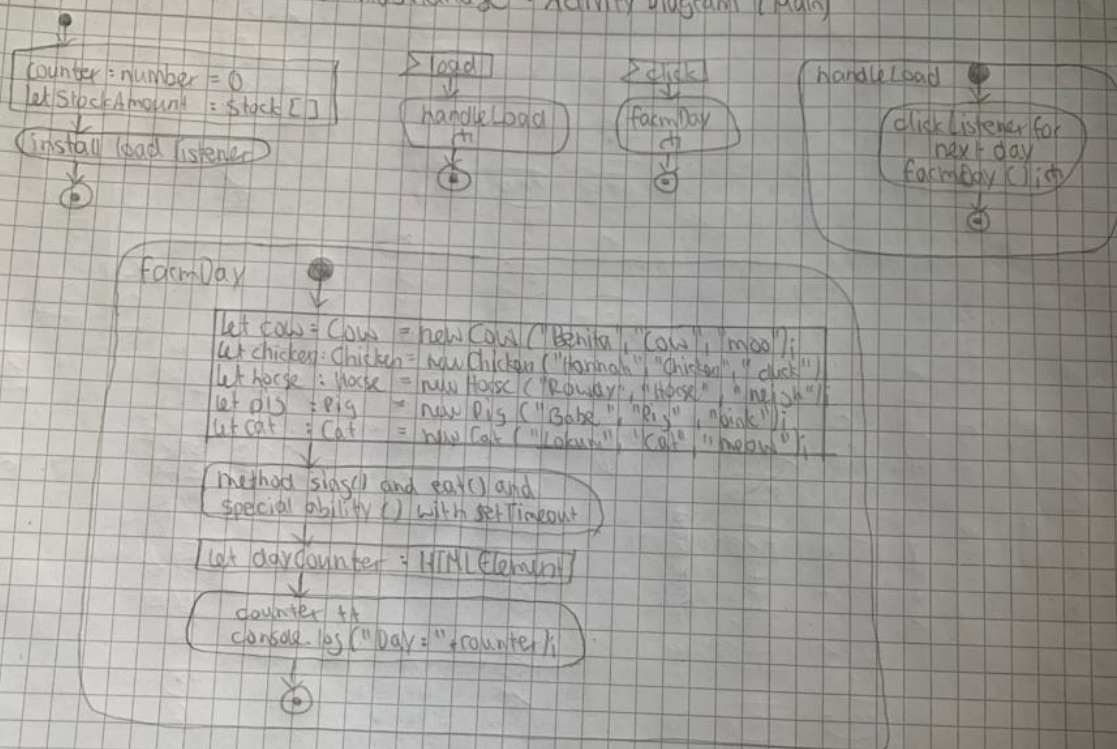 - Activity Diagram (Main)
counter : number = 0
let StockAmount : Stock[]
install load listener
load
handleLoad
click
farmDay
handleLoad
click Listener for
next day
farmDay()
farmDay
let cow : Cow = new Cow ("Benita", "Cow", "moo");
let chicken : Chicken = new Chicken ("Hannah", "Chicken", "cluck")
let horse : Horse = new Horse ("Rowdy", "Horse", "neigh");
let pig : Pig = new Pig ("Babe", "Pig", "oink");
let cat : Cat = new Cat ("Lokum", "Cat", "meow");
method sings() and eat() and
special ability () with setTimeout
let dayCounter : HTMLElement
counter ++
console.log ("Day: "+counter);